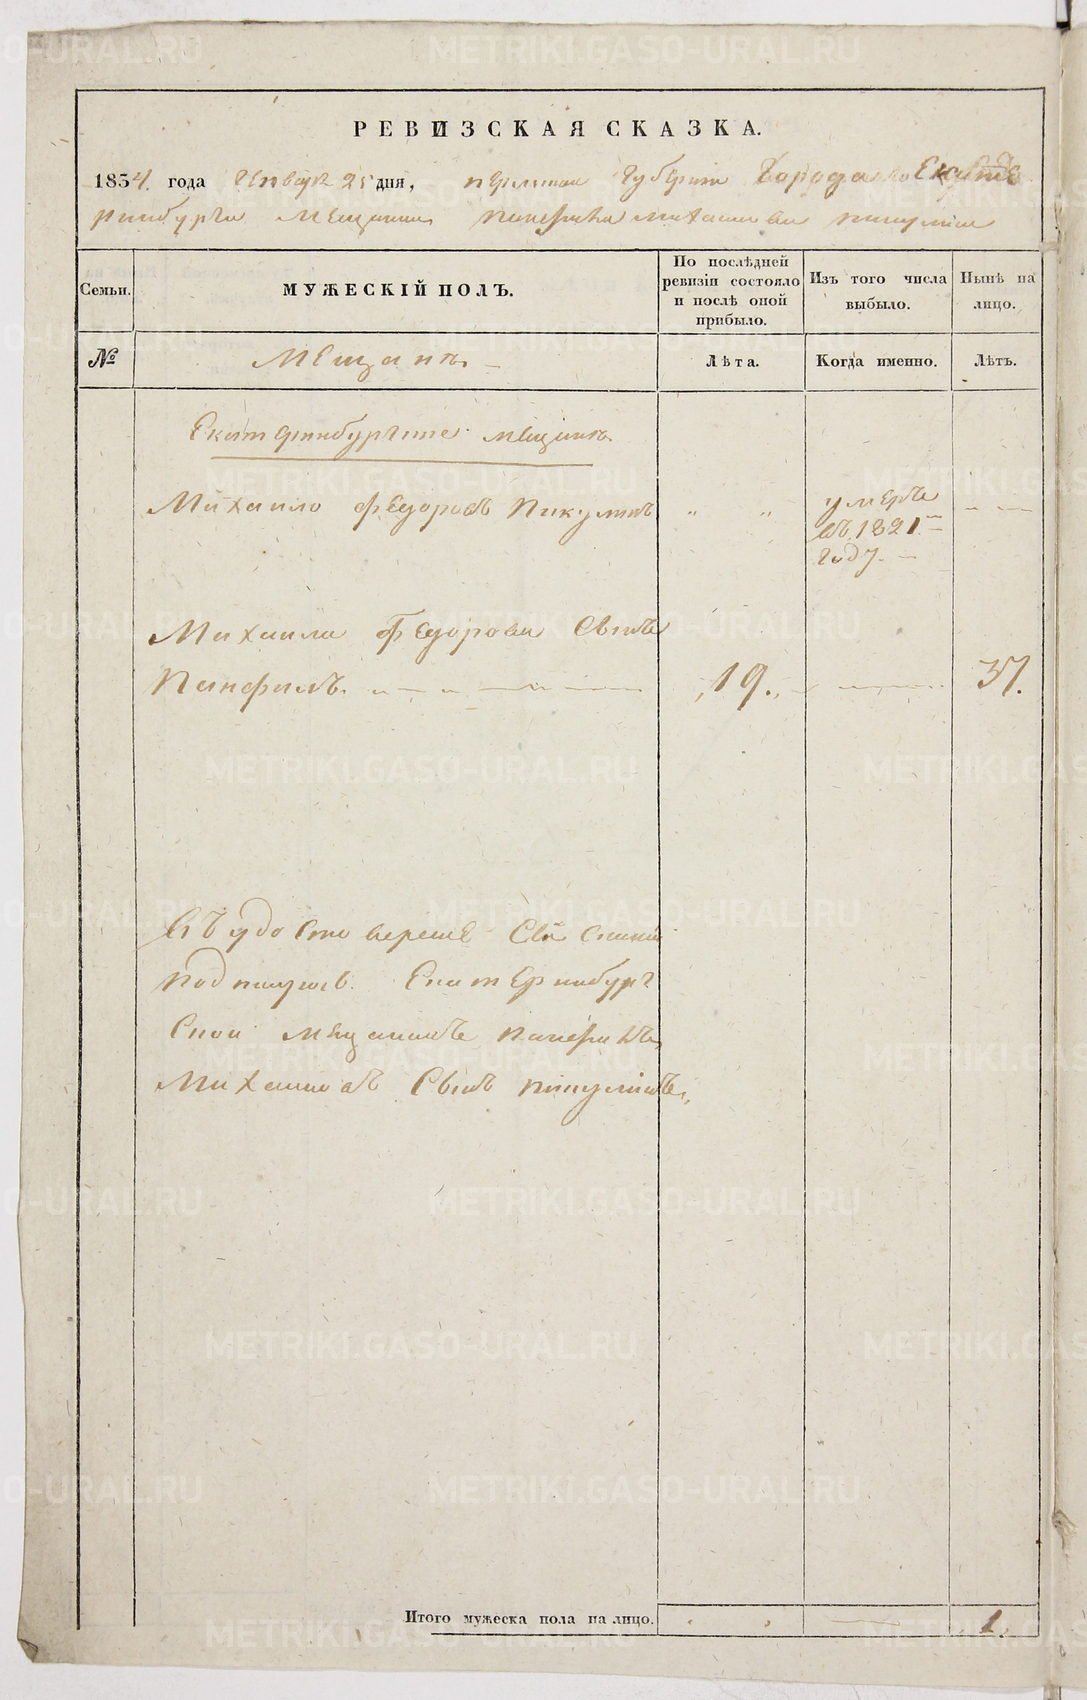 РЕВИЗСКАЯ СКАЗКА.
1834. года Генваря 25 дня, пермской Губернии Города Екате
ринбурга мещанина Панфила михайлова пикулина
Семьи.
МУЖЕСКІЙ ПОЛЪ.
По послѣдней
ревизіи состояло
и послѣ оной
прибыло.
Изъ того числа
выбыло.
Нынѣ на
лицо.
№
Мещане.
Лѣта.
Когда именно.
Лѣтъ.
Екатеринбургские мещане.
Михаило федоровъ Пикулинъ " " умеръ
въ 1821
году.
Михаила Федорова Сынъ
Панфилъ. 19. 37.
Въ удостоверение Сей
подписуюсь. Екатеринбург
ской мещанинъ Панфилъ
Михаиловъ Сынъ пикулинъ
Итого мужеска пола на лицо. 1.
METRIKI.GASO-URAL.RU